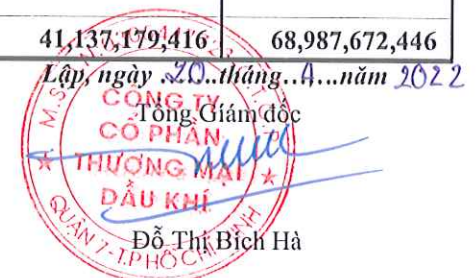 41,137,179,416 68,987,672,446
Lập, ngày 20 tháng 4 năm 2022
Tổng Giám đốc
CÔNG TY
CỔ PHẦN
THƯƠNG MẠI
DẦU KHÍ
QUẬN 7 - T.P HỒ CHÍ MINH
Đỗ Thị Bích Hà